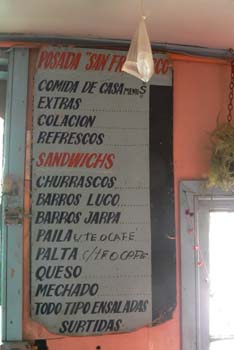 POSADA "SAN FRANCISCO
COMIDA DE CASA MENU $
EXTRAS
COLACION
REFRESCOS
SANDWICHS
CHURRASCOS
BARROS LUCO
BARROS JARPA
PAILA C/TE O CAFÉ
PALTA C/TE O CAFE
QUESO
MECHADO
TODO TIPO ENSALADAS
SURTIDAS